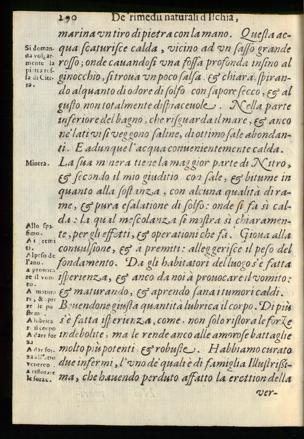 290 De' rimedii naturali d'Ischia,
marina vn tiro di pietra con la mano. Questa ac-
qua scaturisce calda, vicino ad vn sasso grande
rosso; onde cauandosi vna fossa profonda insino al
ginocchio, si troua vn poco salsa, & chiara, spiran-
do alquanto di odore di solfo con sapore secco, & al
gusto non totalmente dispiaceuole. Nella parte
inferiore del bagno, che risguarda il mare, & anco
ne' lati vi si veggono saline, di ottimo sale abondan-
ti. E adunque l'acqua conuenientemente calda.
La sua minera tiene la maggior parte di Nitro,
& secondo il mio giuditio con sale, & bitume in
quanto alla sostanza, con alcuna qualità di ra-
me, & pura esalatione di solfo: onde si fa sì cal-
da: la qual mescolanza si mostra sì chiaramen-
te, per gli effetti, & operationi che fà. Gioua alla
conuulsione, & a premiti: alleggerisce il peso del
fondamento. Da gli habitatori del luogo s'è fatta
isperienza, & anco da noi à prouocare il vomito:
& maturando, & aprendo sana i tumori caldi.
Beuendone giusta quantità lubrica il corpo. Di più
s'è fatta isperienza, come, non solo ristora le forze
indebolite, ma le rende anco alle amorose battaglie
molto più potenti & robuste. Habbiamo curato
due infermi, l'vno de' quali è di famiglia Illustrissi-
ma, che hauendo perduto affatto la erettion della
ver-
Si doman-
da volgar-
mente la
pietra ros-
sa di Cite-
ra.
Minera.
Allo spa-
simo.
A i premi-
ti.
Al peso de
l'ano.
A prouoca
re il vomi
to.
A lubrica
re il corpo
A dar for